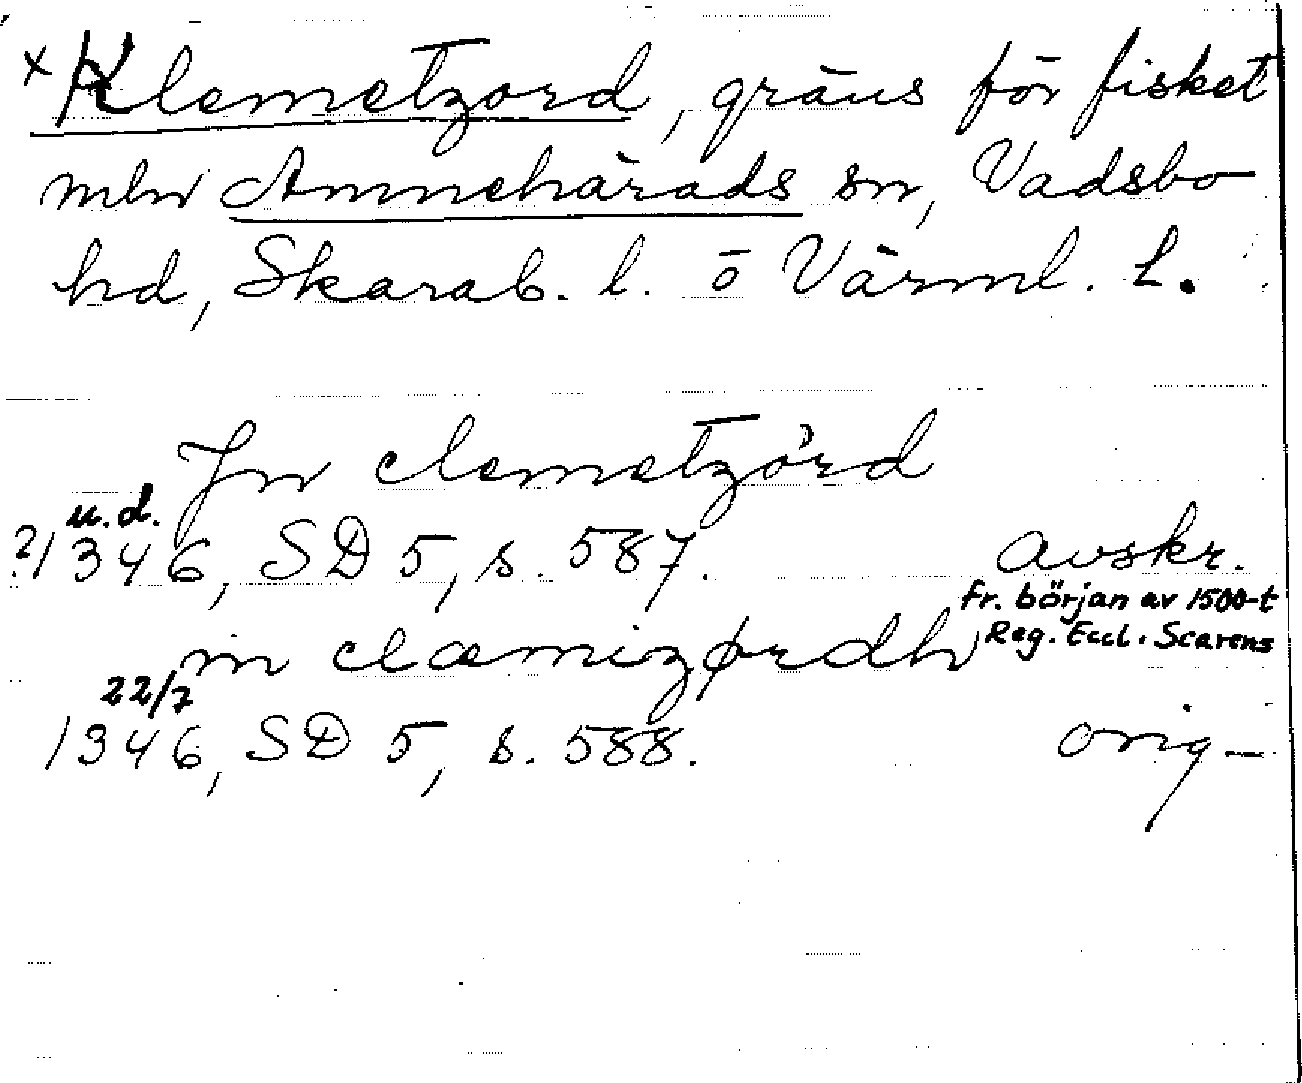 x Klemetzord, gräns för fisket
mln Amnehärads sn, Vadsbo
hd, Skarab. l. o Värml. L.
Jn clemetzörd
u.d.
?1346, SD 5, s. 587. avskr.
fr. början av 1500-t
Reg. Eccl. Scarens
in clæmizørdh
22/7
1346, SD 5, s. 588. orig